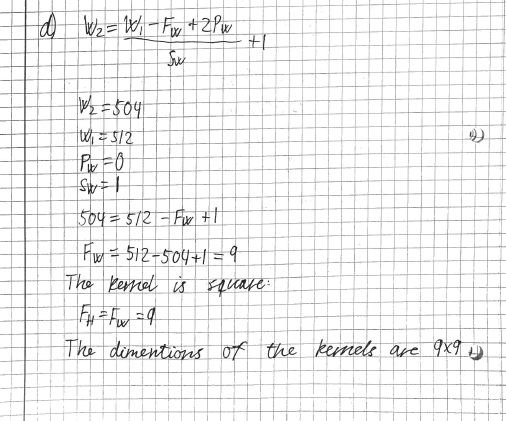 d) W₂ = (W₁ - Fw + 2Pw) / Sw + 1
W₂ = 504
W₁ = 512
Pw = 0
Sw = 1
504 = 512 - Fw + 1
Fw = 512 - 504 + 1 = 9
The kernel is square:
FH = Fw = 9
The dimentions of the kernels are 9x9